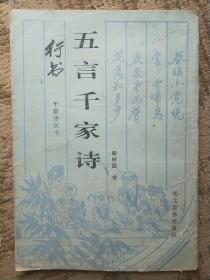 春眠不觉晓
处处啼鸟
夜来风雨声
花落知多少
行书
千家诗丛书
五言千家诗
书
出版社